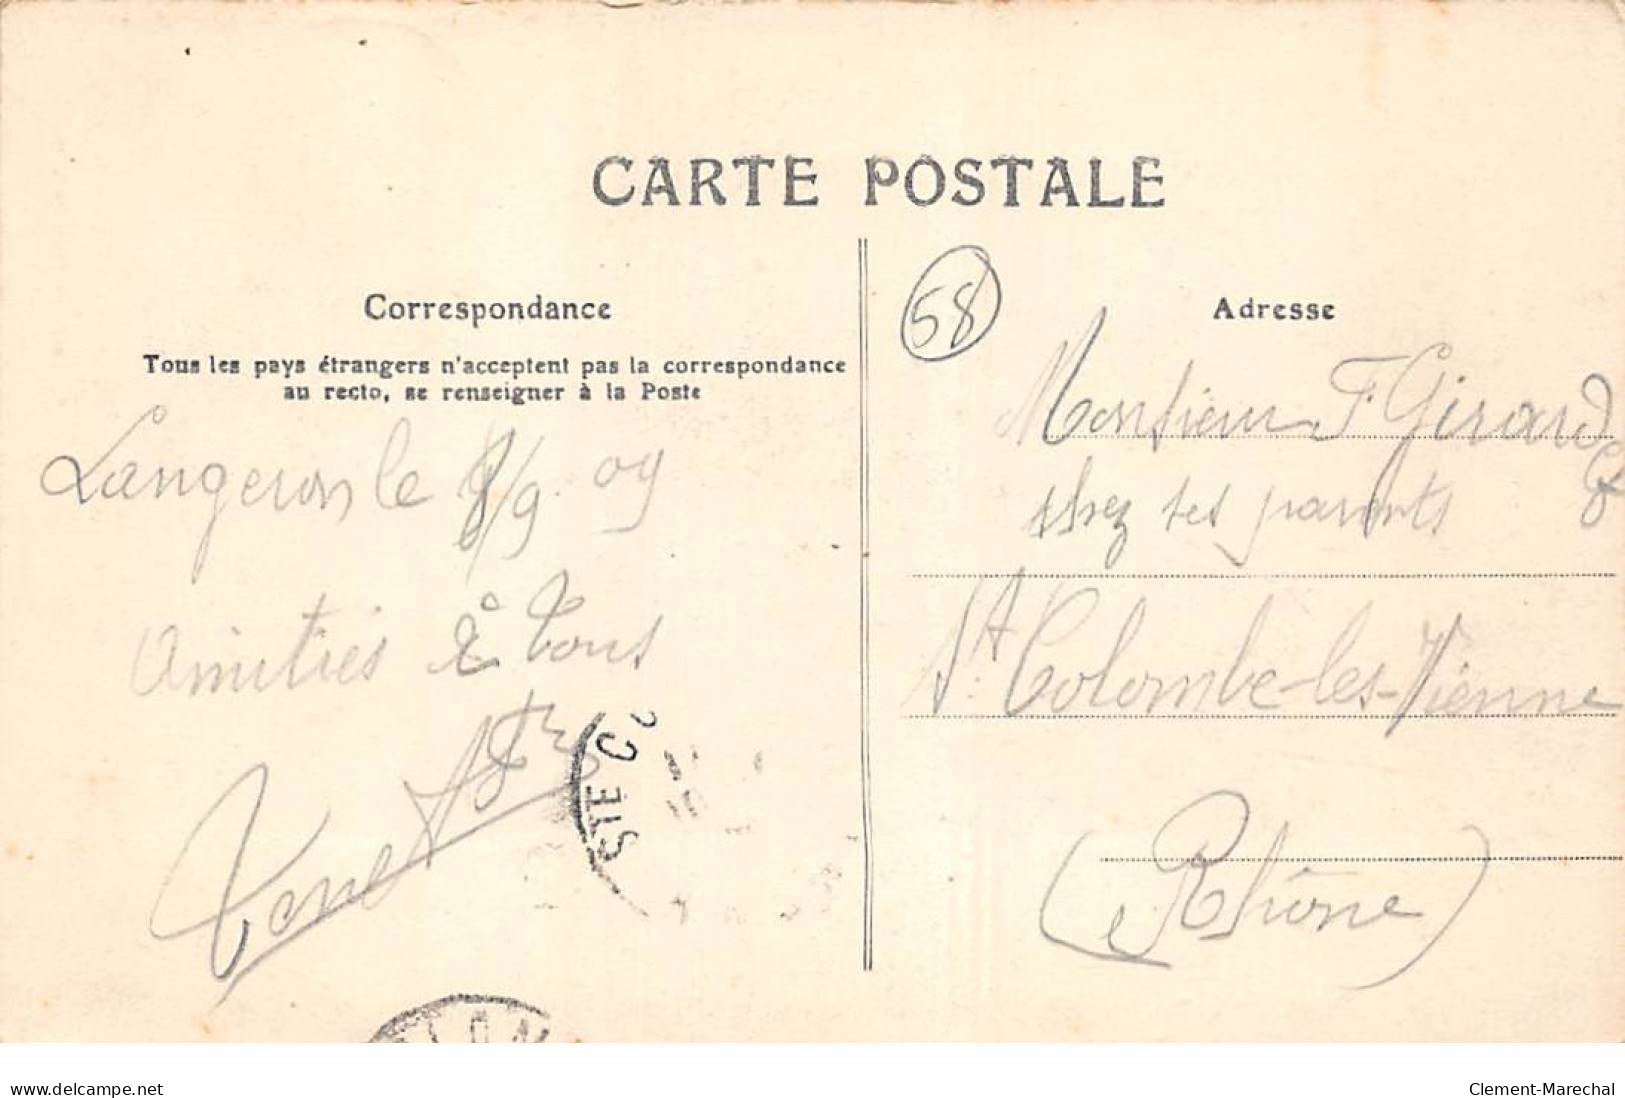 CARTE POSTALE
Correspondance
Tous les pays étrangers n'acceptent pas la correspondance
au recto, se renseigner à la Poste
Langeron le 8/9 09
Amitiés à tous
58
Adresse
Monsieur F. Girard
chez ses parents
St. Colombe-les-Vienne
(Rhône)
STE C
www.delcampe.net
Clement-Marechal